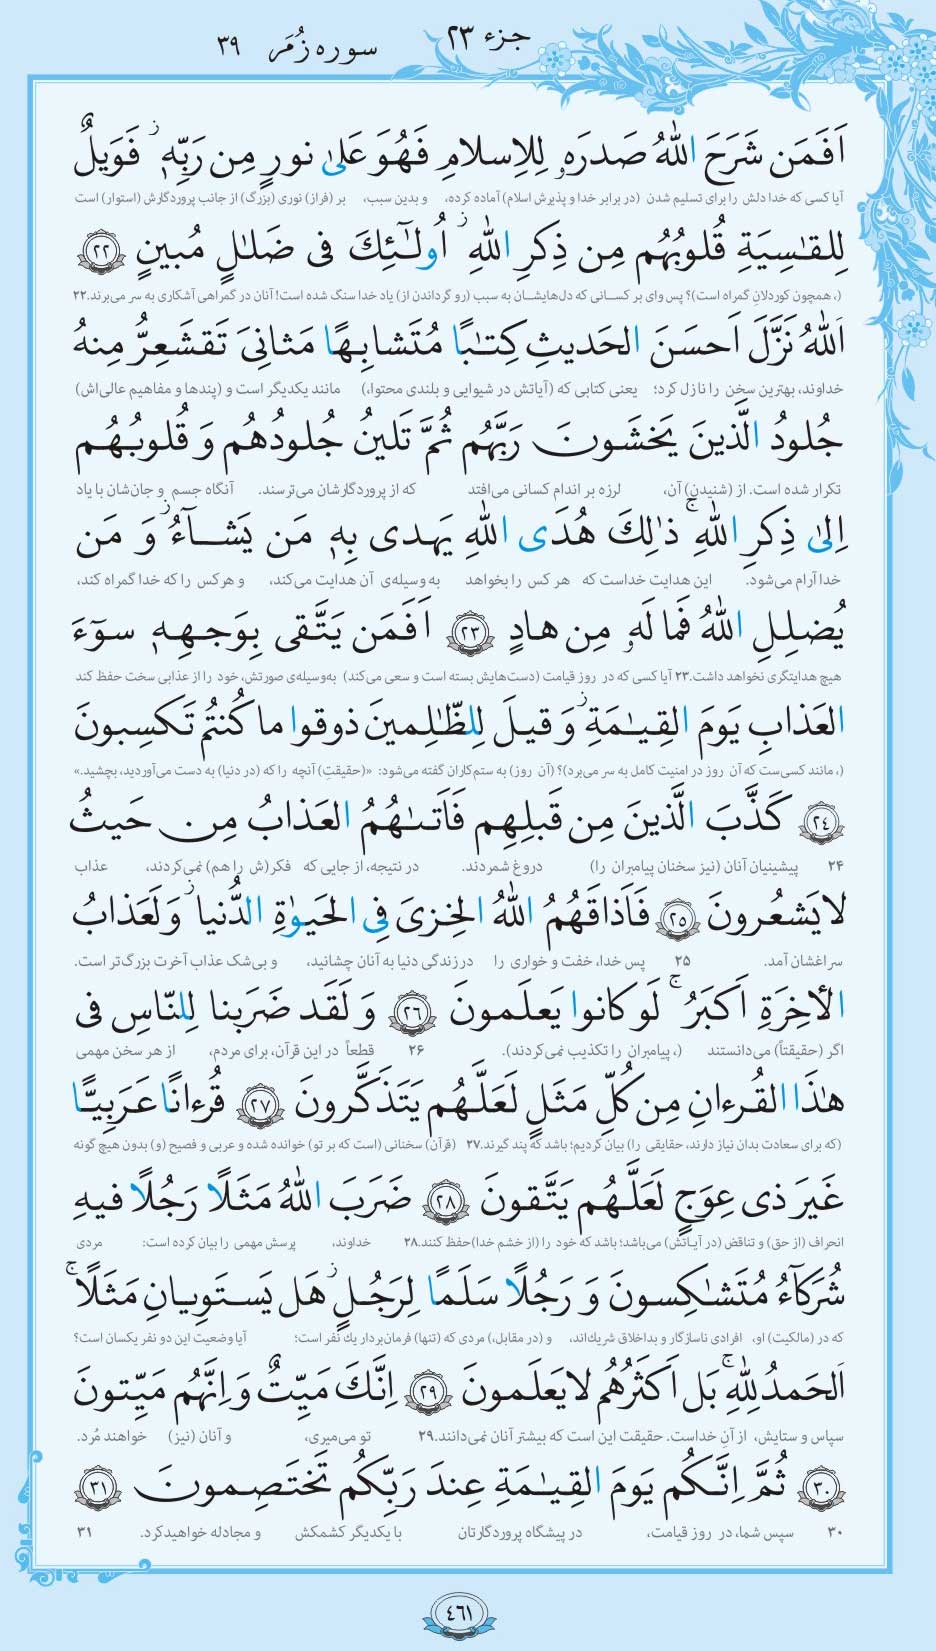 جزء ۲۳
سوره زُمَر ۳۹
اَفَمَن شَرَحَ اللّٰهُ صَدرَهٗ لِلاِسلامِ فَهُوَ عَلىٰ نورٍ مِن رَبِّهٖ ۚ فَوَيلٌ
آیا کسی که خدا دلش را برای تسلیم شدن (در برابر خدا و پذیرش اسلام) آماده کرده، و بدین سبب، بر (فراز) نوری (بزرگ) از جانب پروردگارش (استوار) است
لِلقٰسِيَةِ قُلوبُهُم مِن ذِكرِ اللّٰهِ ۚ اُولٰٓئِكَ فى ضَلٰلٍ مُبينٍ ﴿۲۲﴾
(، همچون کوردلانِ گمراه است)؟ پس وای بر کسانی که دل‌هایشان به سبب (رو گرداندن از) یاد خدا سنگ شده است! آنان در گمراهی آشکاری به سر می‌برند.۲۲
اَللّٰهُ نَزَّلَ اَحسَنَ الحَديثِ كِتٰبًا مُتَشابِهًا مَثانِىَ تَقشَعِرُّ مِنهُ
خداوند، بهترین سخن را نازل کرد؛ یعنی کتابی که (آیاتش در شیوایی و بلندی محتوا،) مانند یکدیگر است و (پندها و مفاهیم عالی‌اش)
جُلودُ الَّذينَ يَخشَونَ رَبَّهُم ثُمَّ تَلينُ جُلودُهُم وَ قُلوبُهُم
تکرار شده است. از (شنیدنِ) آن، لرزه بر اندام کسانی می‌افتد که از پروردگارشان می‌ترسند. آنگاه جسم و جان‌شان با یاد
اِلىٰ ذِكرِ اللّٰهِ ۚ ذٰلِكَ هُدَى اللّٰهِ يَهدى بِهٖ مَن يَشآءُ ۚ وَ مَن
خدا آرام می‌شود. این هدایت خداست که هر کس را بخواهد به وسیله‌ی آن هدایت می‌کند، و هر کس را که خدا گمراه کند،
يُضلِلِ اللّٰهُ فَما لَهٗ مِن هادٍ ﴿۲۳﴾ اَفَمَن يَتَّقى بِوَجهِهٖ سوٓءَ
هیچ هدایتگری نخواهد داشت.۲۳ آیا کسی که در روز قیامت (دست‌هایش بسته است و سعی می‌کند) به‌وسیله‌ی صورتش، خود را از عذابی سخت حفظ کند
العَذابِ يَومَ القِيٰمَةِ ۚ وَ قيلَ لِلظّٰلِمينَ ذوقوا ما كُنتُم تَكسِبونَ
(، مانند کسی‌ست که آن روز در امنیت کامل به سر می‌برد)؟ (آن روز) به ستم‌کاران گفته می‌شود: «(حقیقتِ) آنچه را که (در دنیا) به دست می‌آوردید، بچشید.»
﴿۲۴﴾ كَذَّبَ الَّذينَ مِن قَبلِهِم فَاَتىٰهُمُ العَذابُ مِن حَيثُ
۲۴ پیشینیان آنان (نیز سخنان پیامبران را) دروغ شمردند. در نتیجه، از جایی که فکر(ش را هم) نمی‌کردند، عذاب
لا يَشعُرونَ ﴿۲۵﴾ فَاَذاقَهُمُ اللّٰهُ الخِزىَ فِى الحَيوٰةِ الدُّنيا ۚ وَ لَعَذابُ
سراغشان آمد. ۲۵ پس خدا، خفت و خواری را در زندگی دنیا به آنان چشانید، و بی‌شک عذاب آخرت بزرگ‌تر است.
الأخِرَةِ اَكبَرُ ۚ لَو كانوا يَعلَمونَ ﴿۲۶﴾ وَ لَقَد ضَرَبنا لِلنّاسِ فى
اگر (حقیقتاً) می‌دانستند (، پیامبران را تکذیب نمی‌کردند). ۲۶ قطعاً در این قرآن، برای مردم، از هر سخن مهمی
هٰذَا القُرءانِ مِن كُلِّ مَثَلٍ لَعَلَّهُم يَتَذَكَّرونَ ﴿۲۷﴾ قُرءانًا عَرَبِيًّا
(که برای سعادت بدان نیاز دارند، حقایقی را) بیان کردیم؛ باشد که پند گیرند.۲۷ (قرآن) سخنانی (است که بر تو) خوانده شده و عربی و فصیح (و) بدون هیچ گونه
غَيرَ ذى عِوَجٍ لَعَلَّهُم يَتَّقونَ ﴿۲۸﴾ ضَرَبَ اللّٰهُ مَثَلًا رَجُلًا فيهِ
انحراف (از حق) و تناقض (در آیاتش) می‌باشد؛ باشد که خود را (از خشم خدا) حفظ کنند.۲۸ خداوند، پرسش مهمی را بیان کرده است: مردی
شُرَكآءُ مُتَشٰكِسونَ وَ رَجُلًا سَلَمًا لِرَجُلٍ ۚ هَل يَستَوِيانِ مَثَلًا ۚ
که در (مالکیت) او، افرادی ناسازگار و بداخلاق شریک‌اند، و (در مقابل،) مردی که (تنها) فرمان‌بردار یك نفر است؛ آیا وضعیت این دو نفر یکسان است؟
اَلحَمدُ لِلّٰهِ ۚ بَل اَكثَرُهُم لا يَعلَمونَ ﴿۲۹﴾ اِنَّكَ مَيِّتٌ وَ اِنَّهُم مَيِّتونَ
سپاس و ستایش، از آنِ خداست. حقیقت این است که بیشتر آنان نمی‌دانند.۲۹ تو می‌میری، و آنان (نیز) خواهند مُرد.
﴿۳۰﴾ ثُمَّ اِنَّكُم يَومَ القِيٰمَةِ عِندَ رَبِّكُم تَختَصِمونَ ﴿۳۱﴾
۳۰ سپس شما، در روز قیامت، در پیشگاه پروردگارتان با یکدیگر کشمکش و مجادله خواهیدکرد. ۳۱
۴۶۱